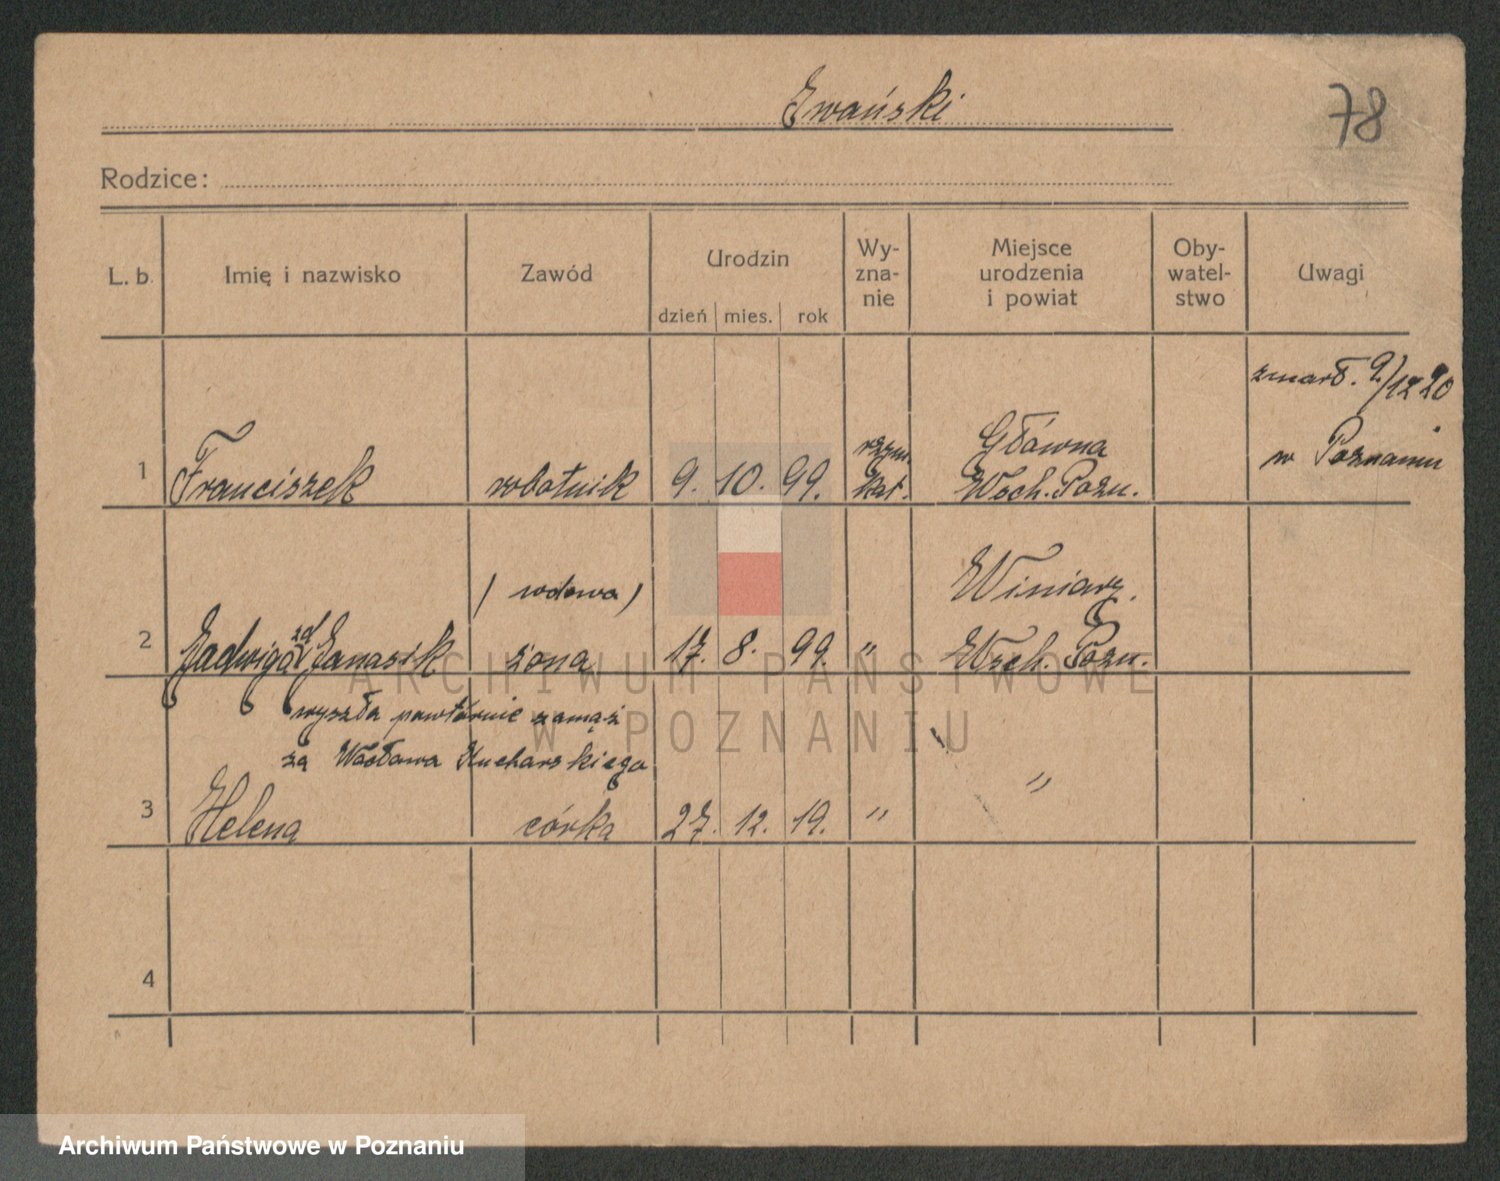 Iwański
78
Rodzice:
L. b. Imię i nazwisko Zawód Urodzin dzień mies. rok Wy-zna-nie Miejsce urodzenia i powiat Oby-watel-stwo Uwagi
zmarł. 9/12 20
w Poznaniu
1 Franciszek robotnik 9. 10. 99. rzym. kat. Główna Wsch. Pozn.
(wdowa)
2 Jadwiga zd Janasik żona 17. 8. 99. " Winiary. Wsch. Pozn.
wyszła powtórnie zamąż
za Wacława Kucharskiego
3 Helena córka 27. 12. 19. " "
4
ARCHIWUM PAŃSTWOWE
W POZNANIU
Archiwum Państwowe w Poznaniu